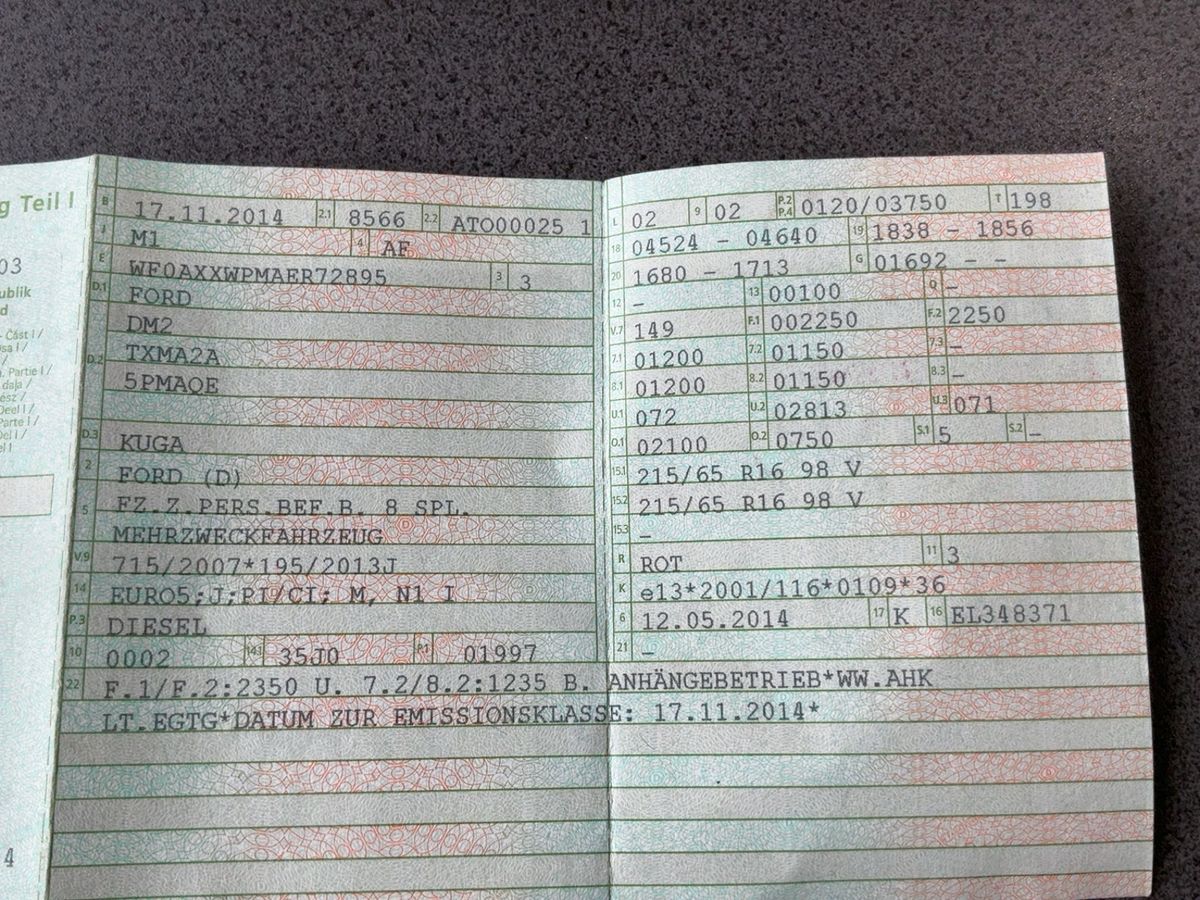 g Teil I
03
ublik
d
- Část I /
osa I /
/
. Partie I /
daļa /
ész /
Deel I /
Parte I /
Del I /
el I
4
B 17.11.2014 2.1 8566 2.2 ATO00025 1
J M1 4 AF
E WF0AXXWPMAER72895 3 3
D.1 FORD
DM2
D.2 TXMA2A
5PMAQE
D.3 KUGA
2 FORD (D)
5 FZ.Z.PERS.BEF.B. 8 SPL.
MEHRZWECKFAHRZEUG
V.9 715/2007*195/2013J
14 EURO5;J;PI/CI; M, N1 I
P.3 DIESEL
10 0002 14.1 35J0 P.1 01997
22 F.1/F.2:2350 U. 7.2/8.2:1235 B. ANHÄNGEBETRIEB*WW.AHK
LT.EGTG*DATUM ZUR EMISSIONSKLASSE: 17.11.2014*
L 02 9 02 P.2 P.4 0120/03750 T 198
18 04524 - 04640 19 1838 - 1856
20 1680 - 1713 G 01692 - -
12 - 13 00100 Q -
V.7 149 F.1 002250 F.2 2250
7.1 01200 7.2 01150 7.3 -
8.1 01200 8.2 01150 8.3 -
U.1 072 U.2 02813 U.3 071
O.1 02100 O.2 0750 S.1 5 S.2 -
15.1 215/65 R16 98 V
15.2 215/65 R16 98 V
15.3 -
R ROT 11 3
K e13*2001/116*0109*36
6 12.05.2014 17 K 16 EL348371
21 -